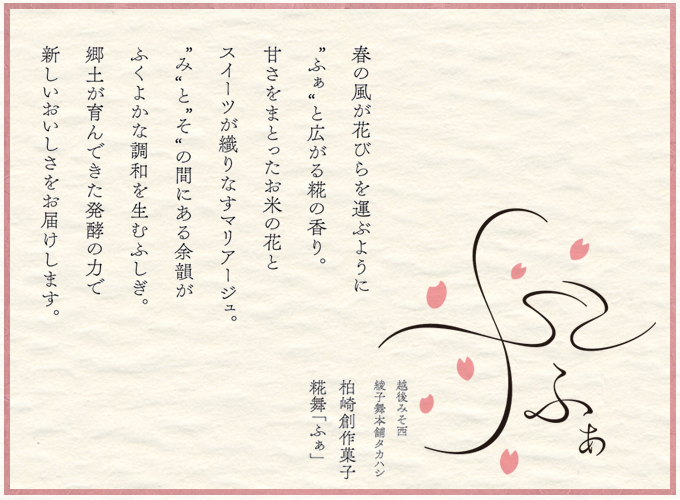 春の風が花びらを運ぶように
”ふぁ“と広がる糀の香り。
甘さをまとったお米の花と
スイーツが織りなすマリアージュ。
”み“と”そ“の間にある余韻が
ふくよかな調和を生むふしぎ。
郷土が育んできた発酵の力で
新しいおいしさをお届けします。
ふぁ
越後みそ西
綾子舞本舗タカハシ
柏崎創作菓子
糀舞「ふぁ」